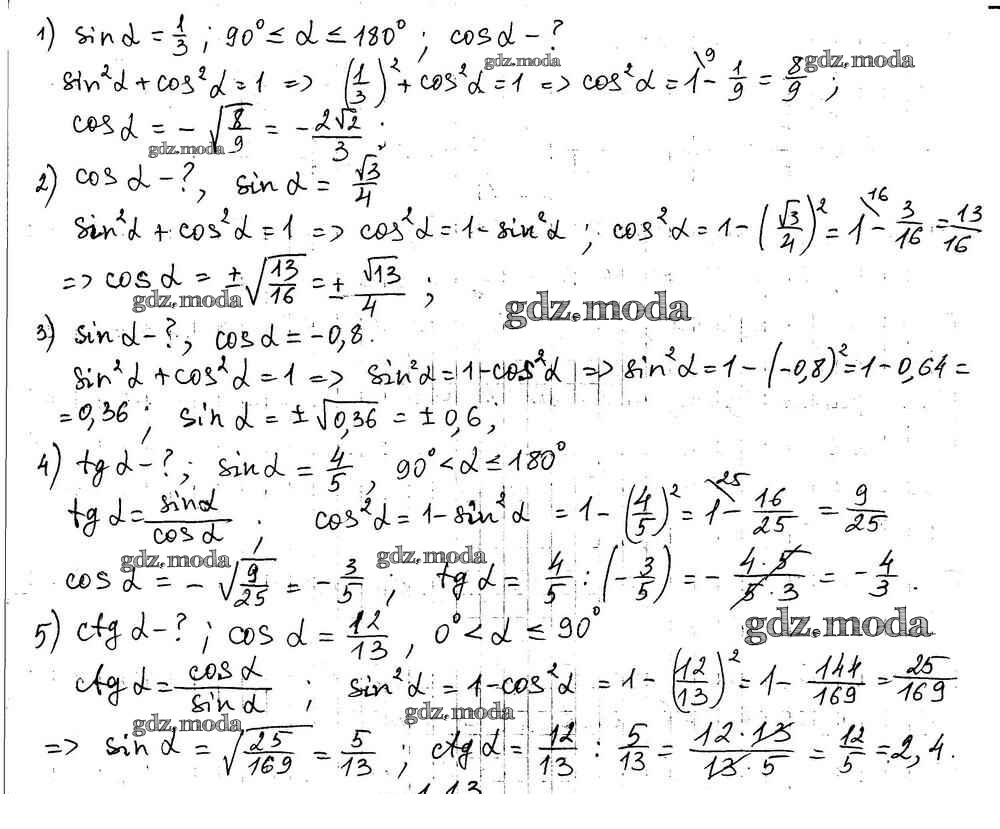 1) sin α = 1/3 ; 90° ≤ α ≤ 180° ; cos α - ?
gdz.moda gdz.moda
sin²α + cos²α = 1 => (1/3)² + cos²α = 1 => cos²α = 1\9 - 1/9 = 8/9 ;
cos α = - √(8/9) = - 2√2/3 .
gdz.moda
2) cos α - ?, sin α = √3/4
sin²α + cos²α = 1 => cos²α = 1 - sin²α ; cos²α = 1 - (√3/4)² = 1\16 - 3/16 = 13/16
=> cos α = ± √(13/16) = ± √13/4 ;
gdz.moda gdz.moda
3) sin α - ?, cos α = -0,8.
sin²α + cos²α = 1 => sin²α = 1 - cos²α => sin²α = 1 - (-0,8)² = 1 - 0,64 =
= 0,36 ; sin α = ± √0,36 = ± 0,6 ;
4) tg α - ? ; sin α = 4/5 , 90° < α ≤ 180°
tg α = sin α/cos α ; cos²α = 1 - sin²α = 1 - (4/5)² = 1\25 - 16/25 = 9/25
gdz.moda gdz.moda
cos α = - √(9/25) = - 3/5 ; tg α = 4/5 : (- 3/5) = - 4·5/5·3 = - 4/3 .
5) ctg α - ? ; cos α = 12/13 , 0° < α ≤ 90°
gdz.moda
ctg α = cos α/sin α ; sin²α = 1 - cos²α = 1 - (12/13)² = 1 - 144/169 = 25/169
gdz.moda gdz.moda
=> sin α = √(25/169) = 5/13 ; ctg α = 12/13 : 5/13 = 12·13/13·5 = 12/5 = 2,4.